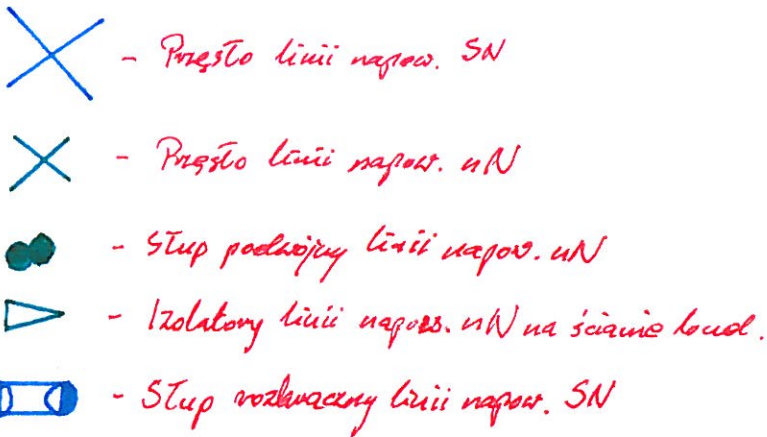 - Przęsło linii napow. SN
- Przęsło linii napow. nN
- Słup podwójny linii napow. nN
- Izolatory linii napow. nN na ścianie bud.
- Słup rozkraczny linii napow. SN